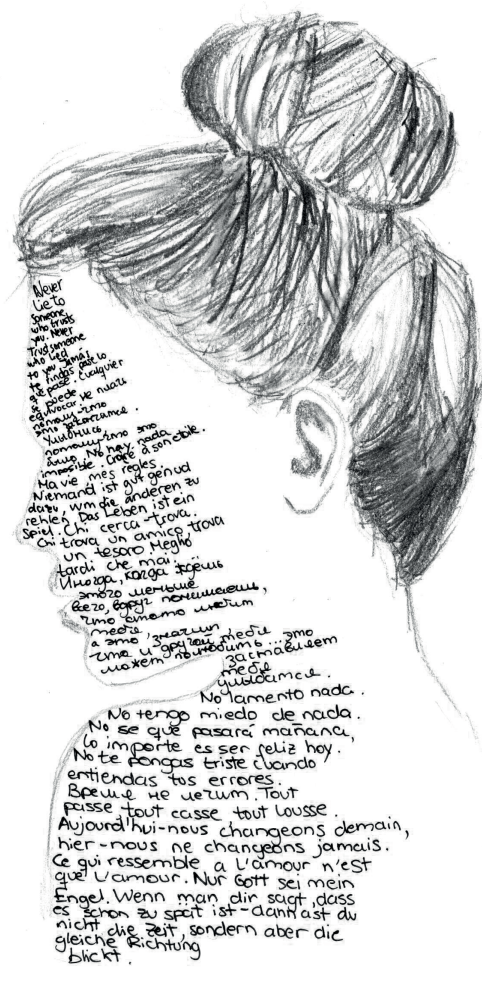 Never
lie to
someone
who trusts
you. Never
trust someone
who lied
to you. Jamás
te rindas, pase lo
que pase. Cualquier
se puede
equivocar. Не плачь
потому-что
это закончилось.
Улыбнись
потому что это
было. No hay nada
imposible. Grâce à son étoile.
Ma vie mes règles
Niemand ist gut genug
dazu, um die anderen zu
rehlen. Das Leben ist ein
Spiel. Chi cerca-trova.
Chi trova un amico, trova
un tesoro. Meglio
tardi che mai...
Иногда, когда ждёшь
этого меньше
всего, вдруг понимаешь,
что кто-то любит
тебя,
а это, значит,
что и другой тебя
может полюбить... это
заставляет
тебя
улыбаться.
No lamento nada.
No tengo miedo de nada.
No se que pasará mañana,
lo importe es ser feliz hoy.
No te pongas triste cuando
entiendas tus errores.
Время не
passe tout casse tout lousse.
Aujourd'hui-nous changeons demain,
hier-nous ne changeons jamais.
Ce qui ressemble a L'amour n'est
que L'amour. Nur Gott sei mein
Engel. Wenn man dir sagt, dass
es schon zu spät ist-dann ast du
nicht die Zeit, sondern aber die
gleiche Richtung
blickt.